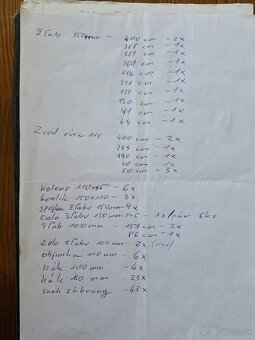 Žľab 150mm - 400 cm - 2x
388 cm - 1x
381 cm - 1x
269 cm - 1x
206 cm - 1x
221 cm - 1x
151 cm - 1x
130 cm - 1x
91 cm - 1x
44 cm - 1x
Zvod rúra 110 400 cm - 2x
244 cm - 1x
190 cm - 1x
90 cm - 1x
50 cm - 3x
koleno 110 - 6x
kotlík 150x110 - 3x
spojka žľabu 150mm - 9x
čelo žľabu 150mm - 2x/pár
žľab 100mm - 151 cm - 2x
86 cm - 1x
čelo žľabu 100mm - 2x
objímka 110mm - 6x
hák 100mm - 4x
hák 150 mm - 23x
sneh. zábrany - 43x
bazos.sk